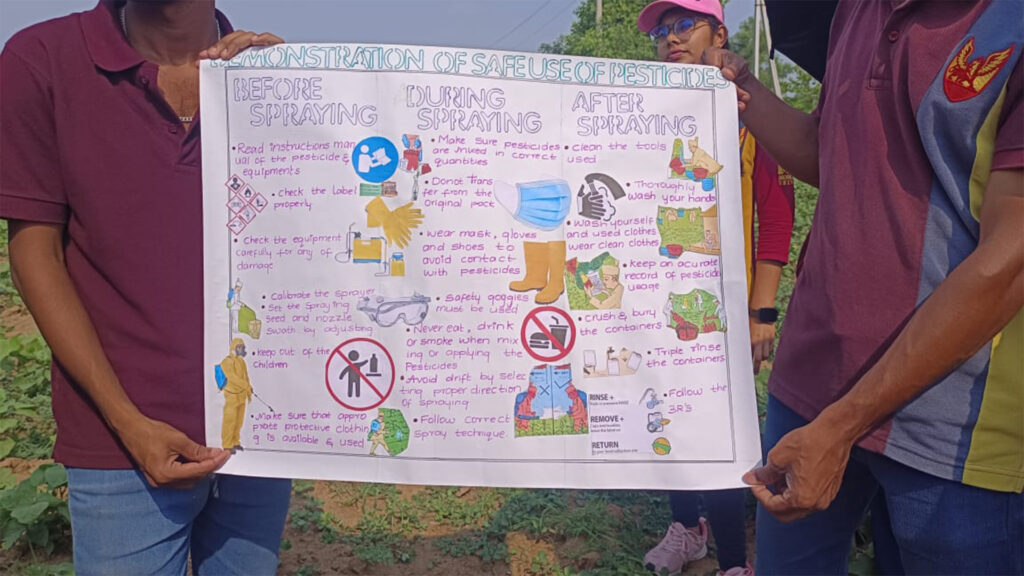 DEMONSTRATION OF SAFE USE OF PESTICIDES
BEFORE
SPRAYING
• Read instructions man
ual of the pesticide &
equipments
• Check the Label
properly
• Check the equipment
Carefully for any of
damage
• Calibrate the sprayer
Set the spraying
Seed and nozzle
Swath by adjusting
• Keep out of the
Children
• Make sure that appro
priate protective clothin
g is available & used
DURING
SPRAYING
• Make sure pesticides
are mixed in correct
quantities
• Donot Trans
fer from the
Original pact
• wear mask, gloves
and shoes to
avoid contact
with pesticides
• Safety goggles
must be used
• Never eat, drink
or smoke when mix
ing or applying the
Pesticides
• Avoid drift by selec
ting proper direction
of spraying
• Follow correct
Spray technique.
AFTER
SPRAYING
• clean the tools
used
• Thoroughly
wash your hands
• wash yourself
and used clothes
wear clean clothes
• keep an acurate
record of pesticide
usage
• crush & bury
the containers
• Triple rinse
the containers
• Follow the
3R's
RINSE +
REMOVE +
RETURN